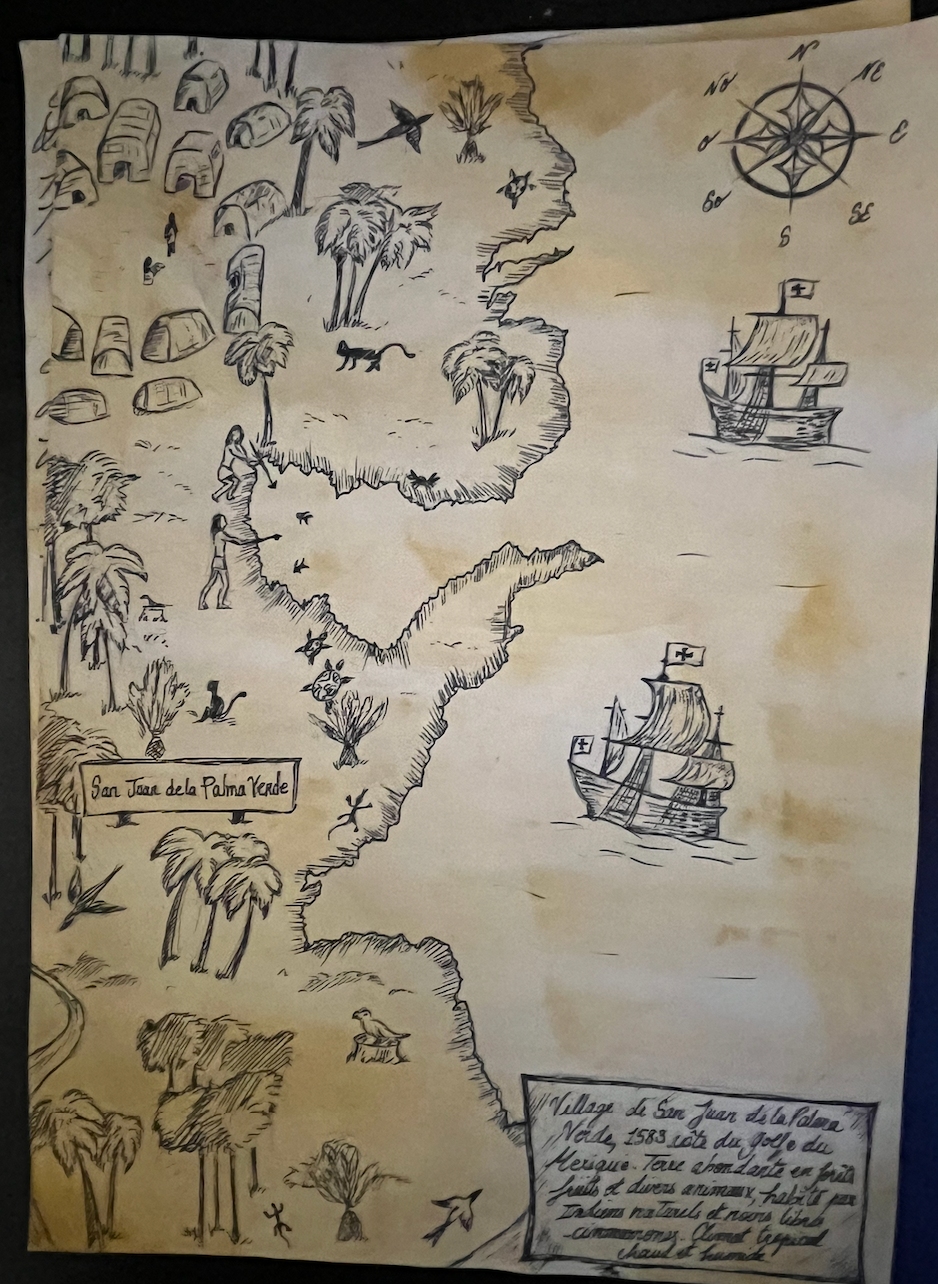 N
NO
NE
O
E
SO
SE
S
San Juan de la Palma Verde
Village de San Juan de la Palma
Verde, 1583 côte du Golfe du
Mexique. Terre abondante en forêts
fruits et divers animaux, habité par
Indiens naturels et noirs libres
-cimmarones-. Climat tropical
chaud et humide